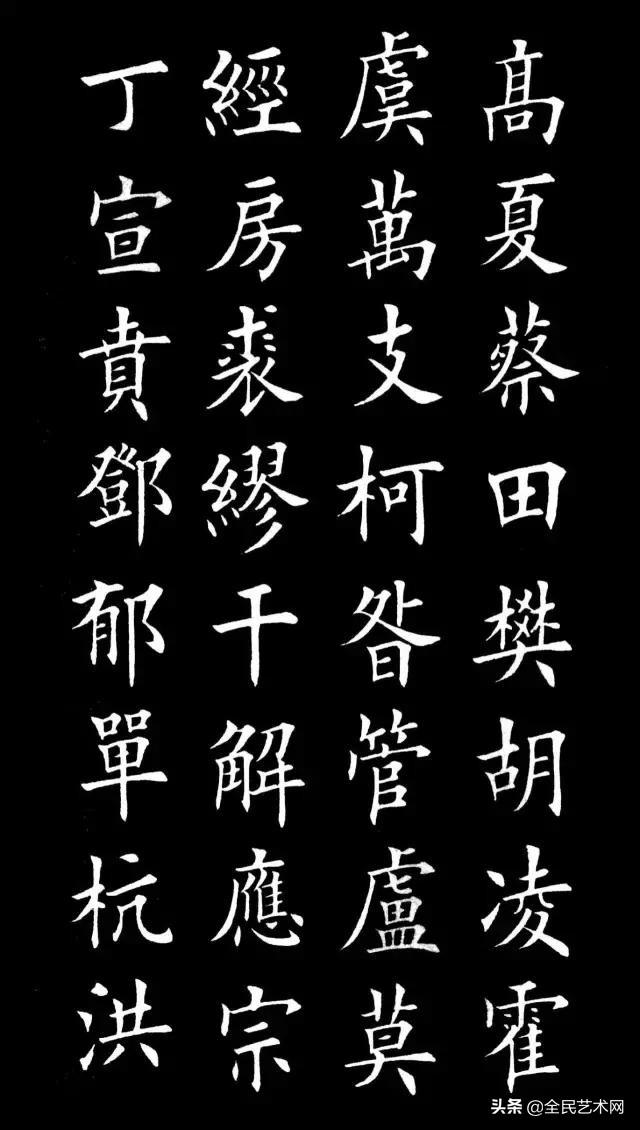 髙夏蔡田樊胡凌霍
虞萬支柯昝管盧莫
經房裘繆干解應宗
丁宣賁鄧郁單杭洪
头条 @全民艺术网